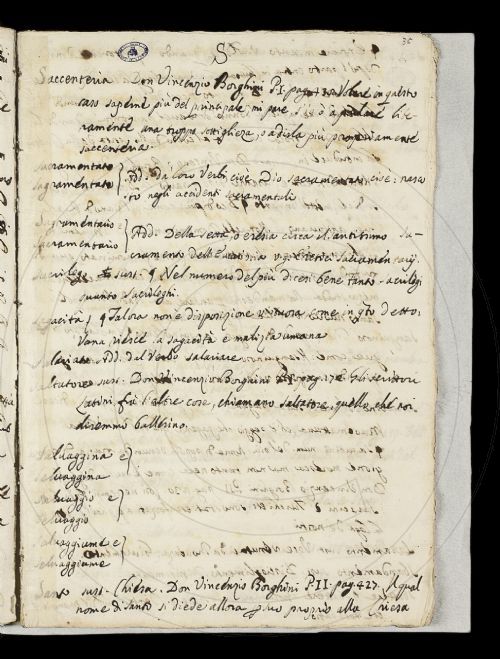 36
S
Saccenteria Don Vincenzio Borghini P. I. pag.
caso saperne più del principale, mi pare, s'io ò a parlare libe-
ramente una troppa sottigliezza, o a dirla più propriamente
saccenteria.
Sacramentato
Sagramentato } Add. da loro Verbi cioè Dio sacramentato, cioè: nasco
sto negli accidenti sacramentali
Sagramentario e
Sacramentario } Add. Della setta, o eresia circa il santissimo Sa-
cramento dell'Eucaristia v.g. Eretici Sacramentarj.
sust. ¶ Nel numero del più dicesi bene tanto sacrilegj
quanto sacrileghi.
¶ Talora non è disposizione virtuosa come in q.to detto:
Vana è sagacità e malizia umana
Add. dal Verbo salariare
sust. Don Vincenzio Borghini pag. 172. Gli scrittori
Latini fra l'altre cose, chiamano saltatore, quello, che noi
diremmo ballerino.
Salvaggina e
selvaggina }
Salvaggio e
selvaggio }
Salvaggiume e
selvaggiume }
Santo sust. Chiesa. Don Vincenzio Borghini P. II. pag. 427. Il qual
nome di santo si diede allora per suo proprio alla Chiesa